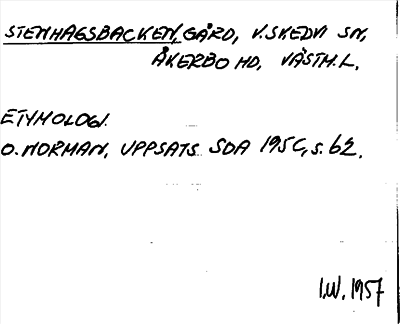 STENHAGSBACKEN, GÅRD, V. SKEDVI SN,
ÅKERBO HD, VÄSTM. L.
ETYMOLOGI.
O. NORMAN, UPPSATS SOA 195C, s. 62.
I.W. 1957